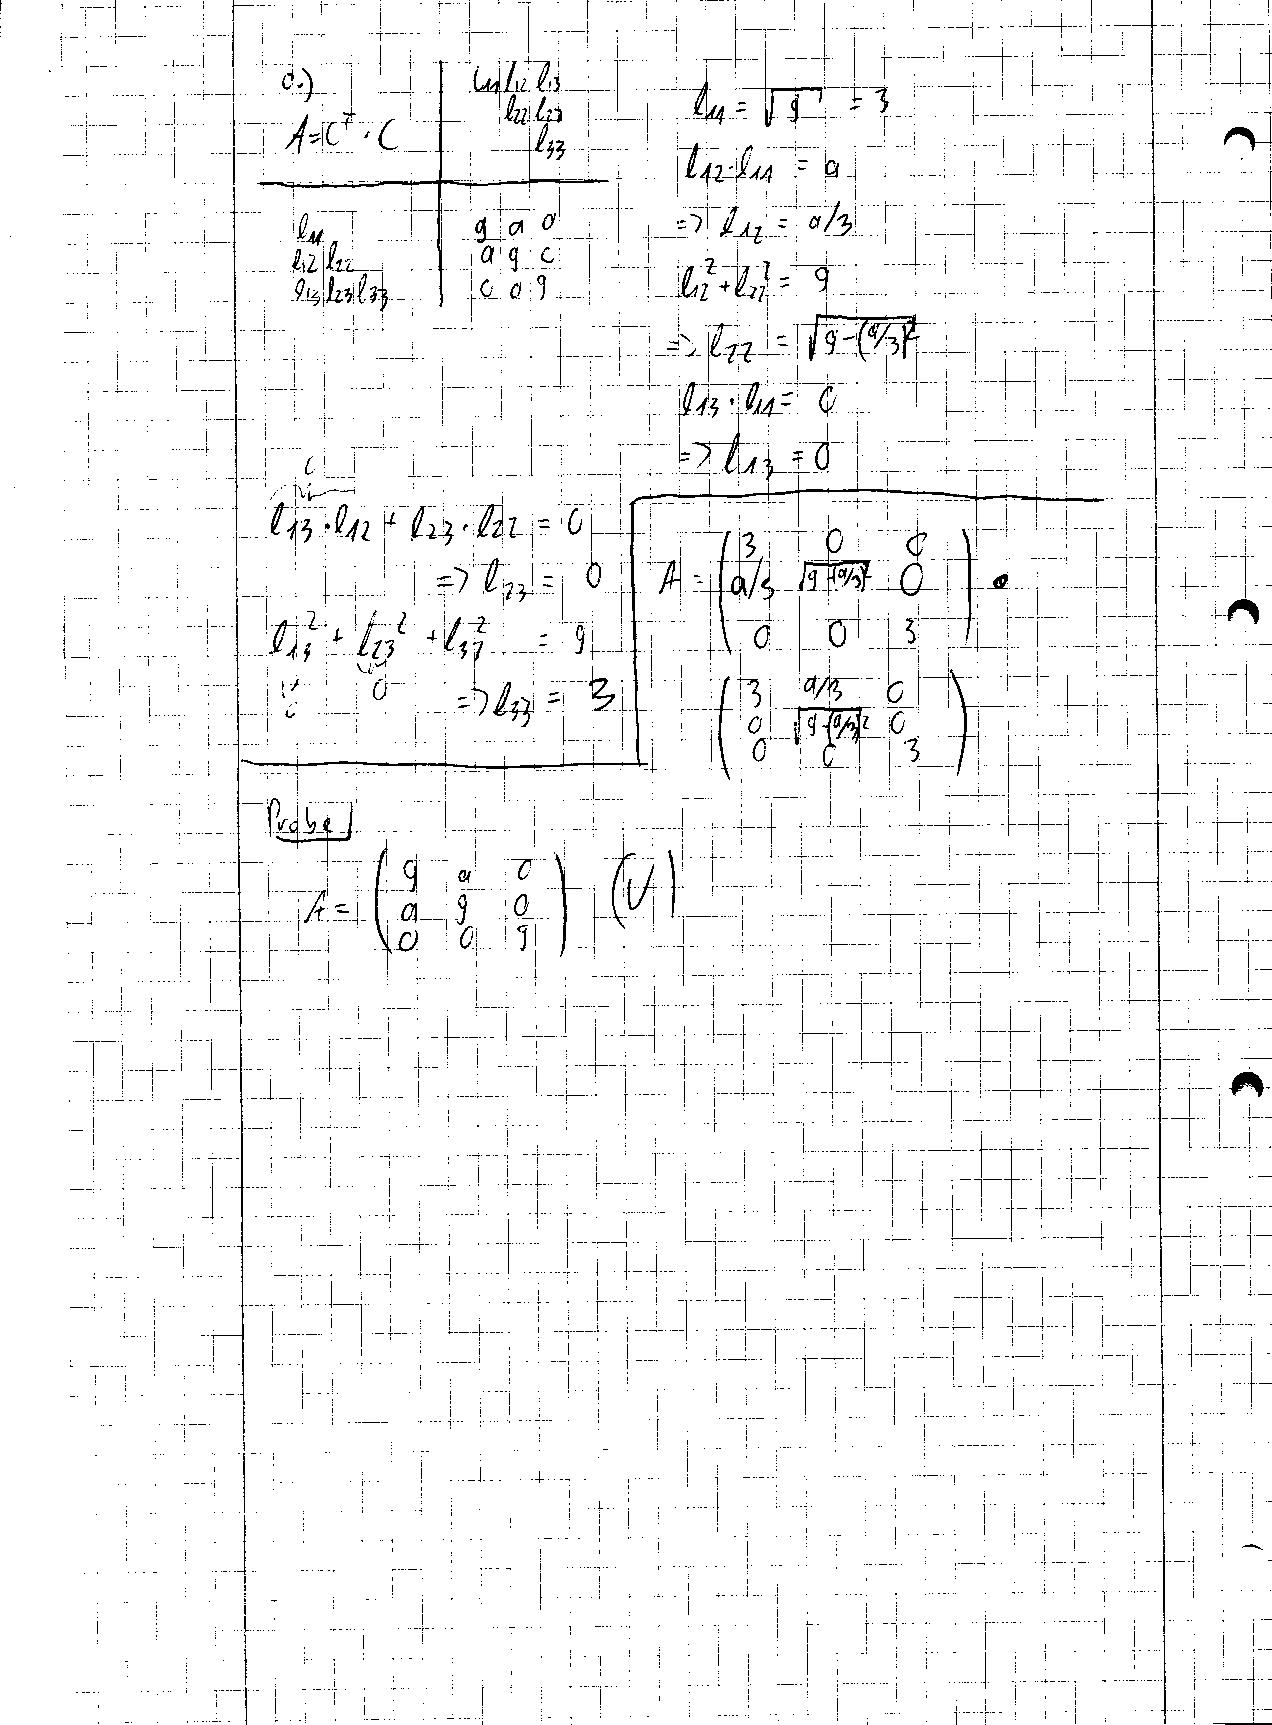 a.)
A = C^T · C
l11 l12 l13
l22 l23
l33
l11
l12 l22
l13 l23 l33
9 a 0
a 9 0
0 0 9
l11 = √9 = 3
l12·l11 = a
=> l12 = a/3
l12² + l22² = 9
=> l22 = √(9-(a/3)²)
l13 · l11 = 0
=> l13 = 0
0
l13 · l12 + l23 · l22 = 0
=> l23 = 0
l13² + l23² + l33² = 9
0 0 => l33 = 3
A = ( 3 0 0
a/3 √(9-(a/3)²) 0
0 0 3 ) •
( 3 a/3 0
0 √(9-(a/3)²) 0
0 0 3 )
Probe
A = ( 9 a 0
a 9 0
0 0 9 ) (✓)